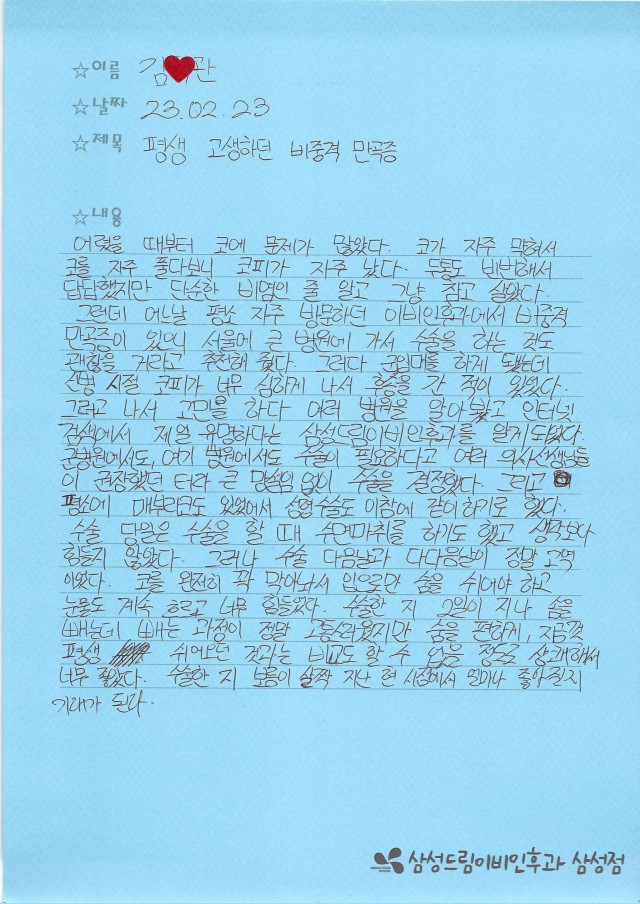 ☆이름 김♥관
☆날짜 23.02.23
☆제목 평생 고생하던 비중격 만곡증
☆내용
어렸을 때부터 코에 문제가 많았다. 코가 자주 막혀서
코를 자주 풀다보니 코피가 자주 났다. 두통도 빈번해서
답답했지만 단순한 비염인 줄 알고 그냥 참고 살았다.
그런데 어느날 평소 자주 방문하던 이비인후과에서 비중격
만곡증이 있으니 서울에 큰 병원에 가서 수술을 하는 것도
괜찮을 거라고 추천해 줬다. 그러다 군입대를 하게 됐는데
선병 시절 코피가 너무 심하게 나서 후송을 간 적이 있었다.
그러고 나서 고민을 하다 여러 병원을 알아봤고 인터넷
검색에서 제일 유명하다는 삼성드림이비인후과를 알게되었다.
군병원에서도, 여기 병원에서도 수술이 필요하다고 여러 의사선생님들
이 권장했던 터라 큰 망설임 없이 수술을 결정했다. 그리고
평소에 매부리코도 있었어서 성형수술도 이참에 같이하기로 했다.
수술 당일은 수술을 할 때 수면마취를 하기도 했고 생각보다
힘들지 않았다. 그러나 수술 다음날과 다다음날이 정말 고역
이었다. 코를 완전히 꽉 막아놔서 입으로만 숨을 쉬어야 하고
눈물도 계속 흐르고 너무 힘들었다. 수술한 지 2일이 지나 솜을
빼는데 빼는 과정이 정말 고통스러웠지만 숨을 편하게, 지금껏
평생 쉬어오던 것과는 비교도 할 수 없을 정도로 상쾌해서
너무 좋았다. 수술한 지 보름이 살짝 지난 현 시점에서 얼마나 좋아질지
기대가 된다.
삼성드림이비인후과 삼성점